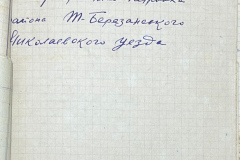 района Т-Березанського
Николаевского уезда